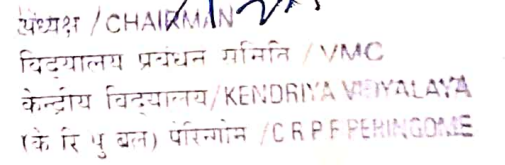 अध्यक्ष / CHAIRMAN
विद्यालय प्रबंधन समिति / VMC
केन्द्रीय विद्यालय/KENDRIYA VIDYALAYA
(के रि पु बल) पेरिन्गोम /C R P F PERINGOME